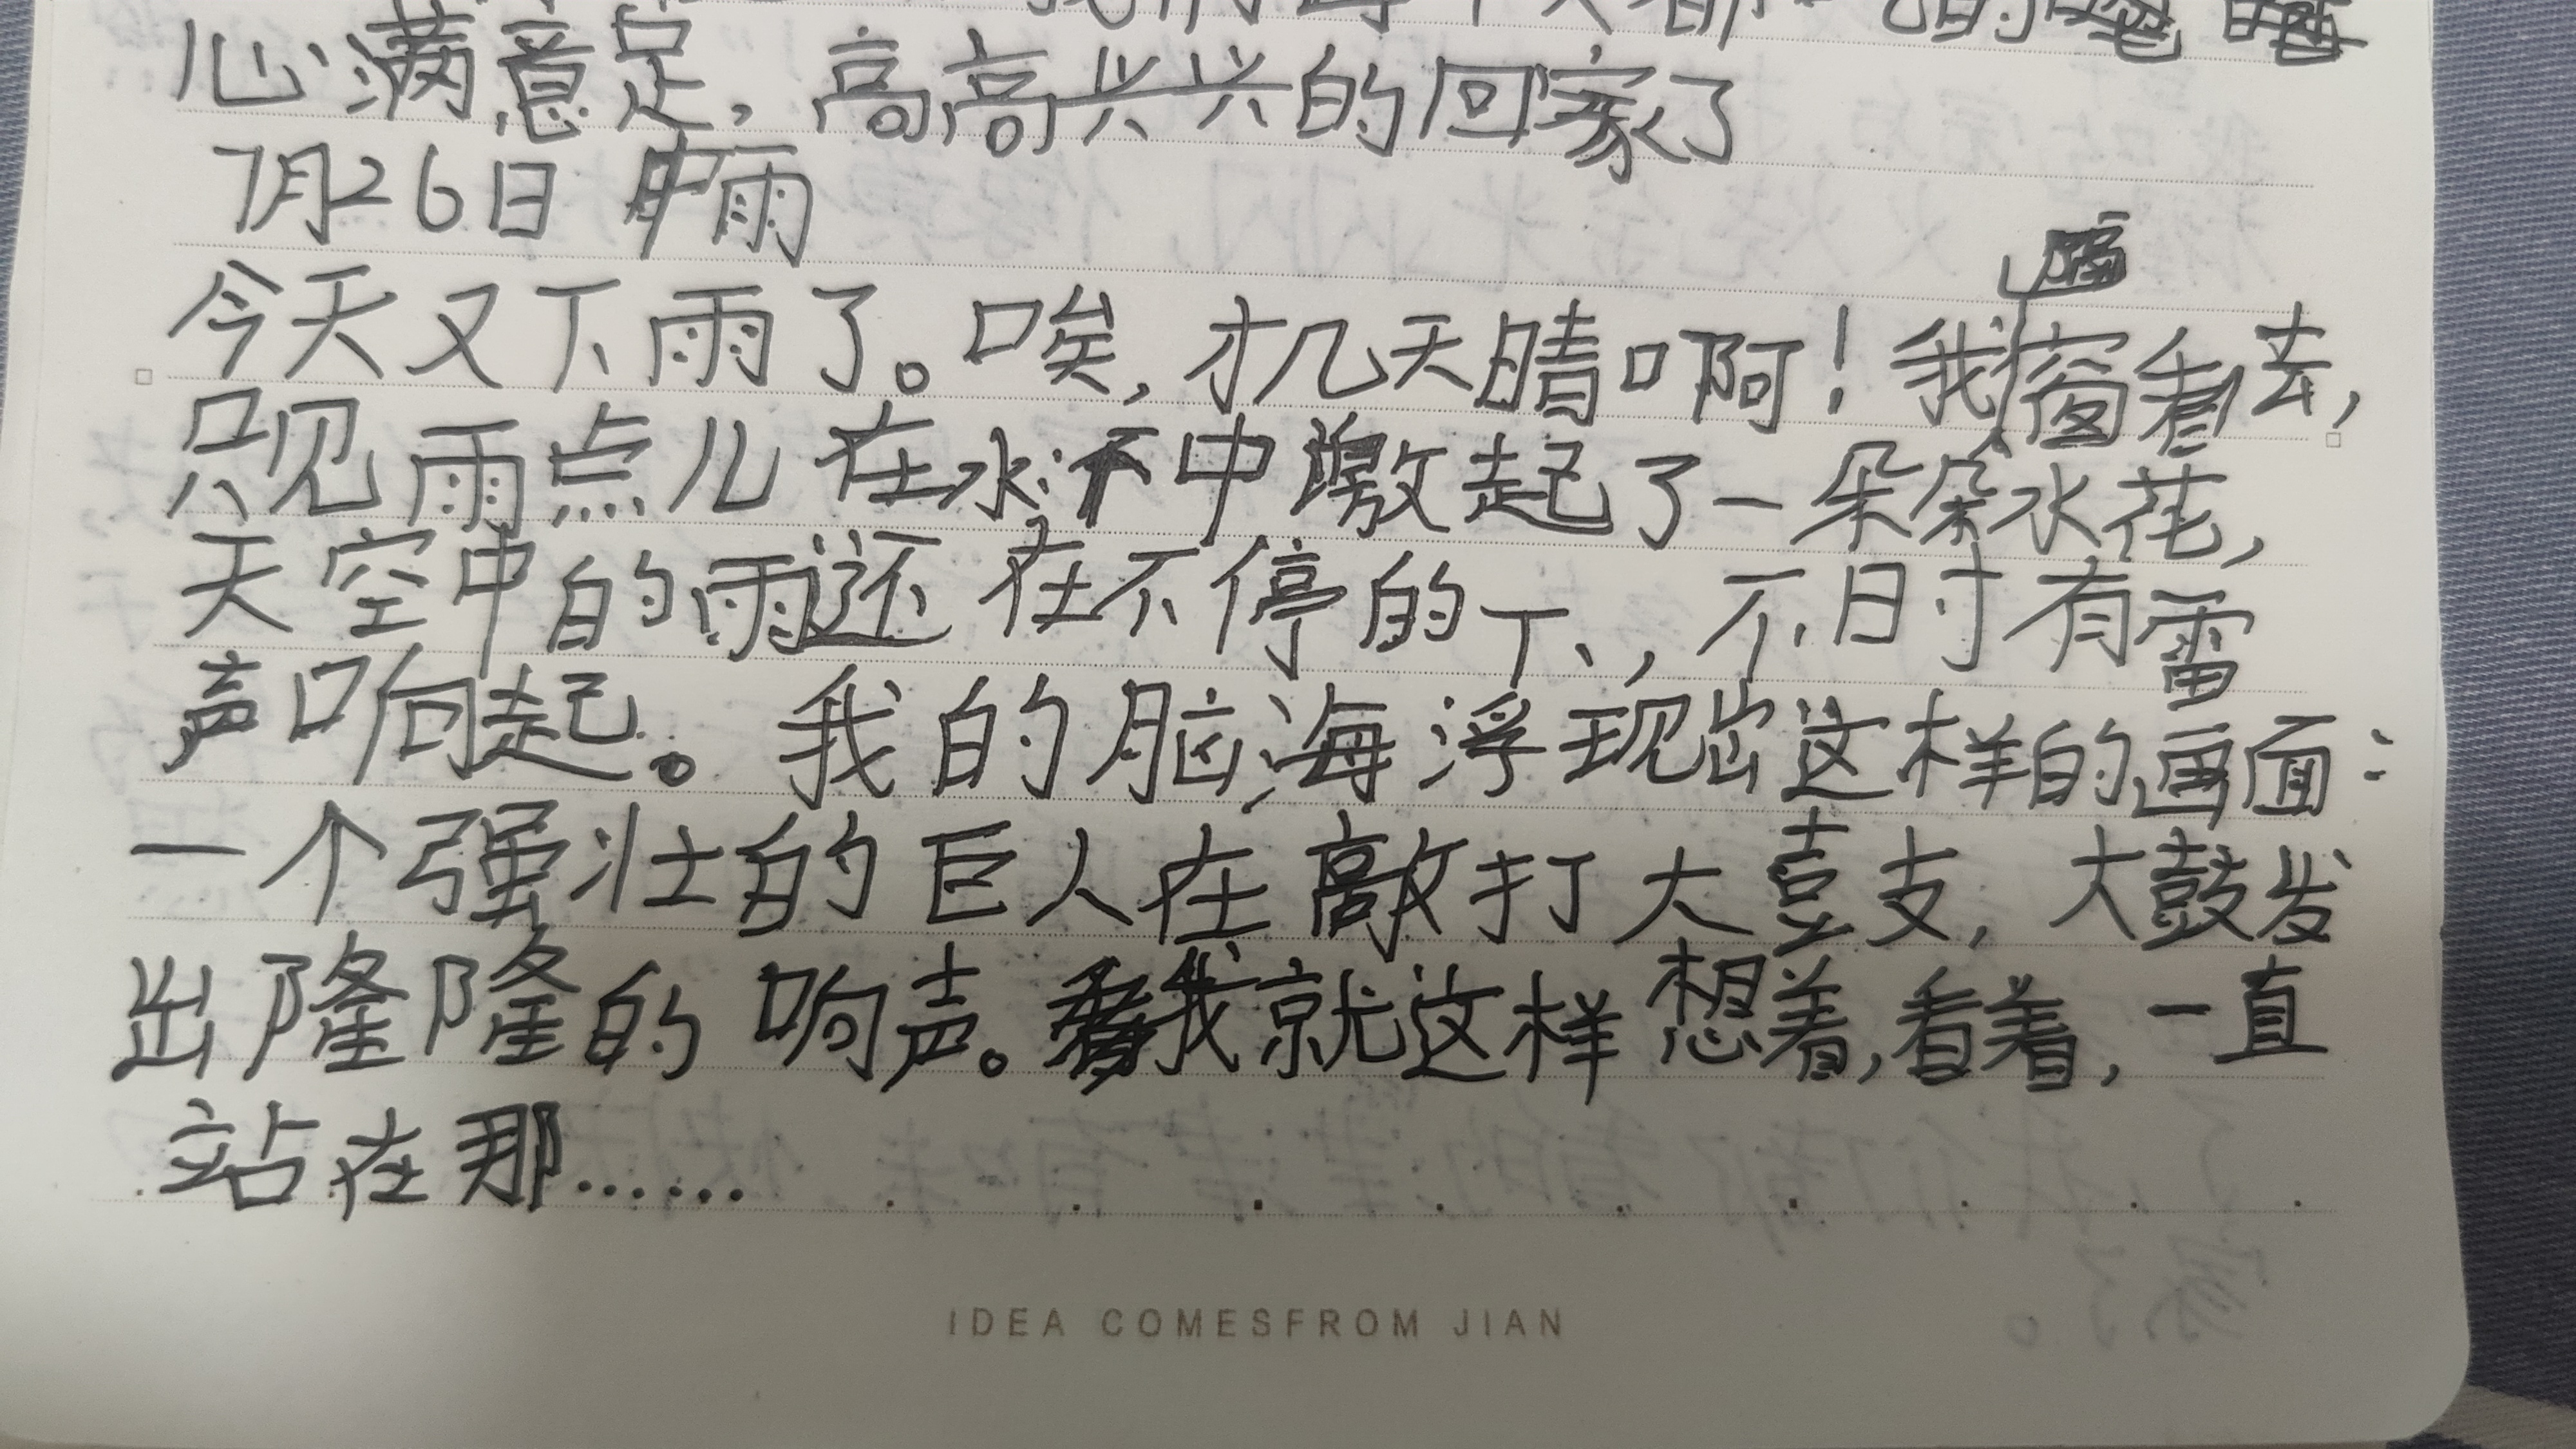 心满意足，高高兴兴的回家了
7月26日 雨
今天又下雨了。唉，才几天晴啊！我隔窗看去，
只见雨点儿在水中激起了一朵朵水花，
天空中的雨还在不停的下，不时有雷
声响起。我的脑海浮现出这样的画面：
一个强壮的巨人在敲打大鼓，大鼓发
出隆隆的响声。我就这样想着，看着，一直
站在那……
IDEA COMESFROM JIAN